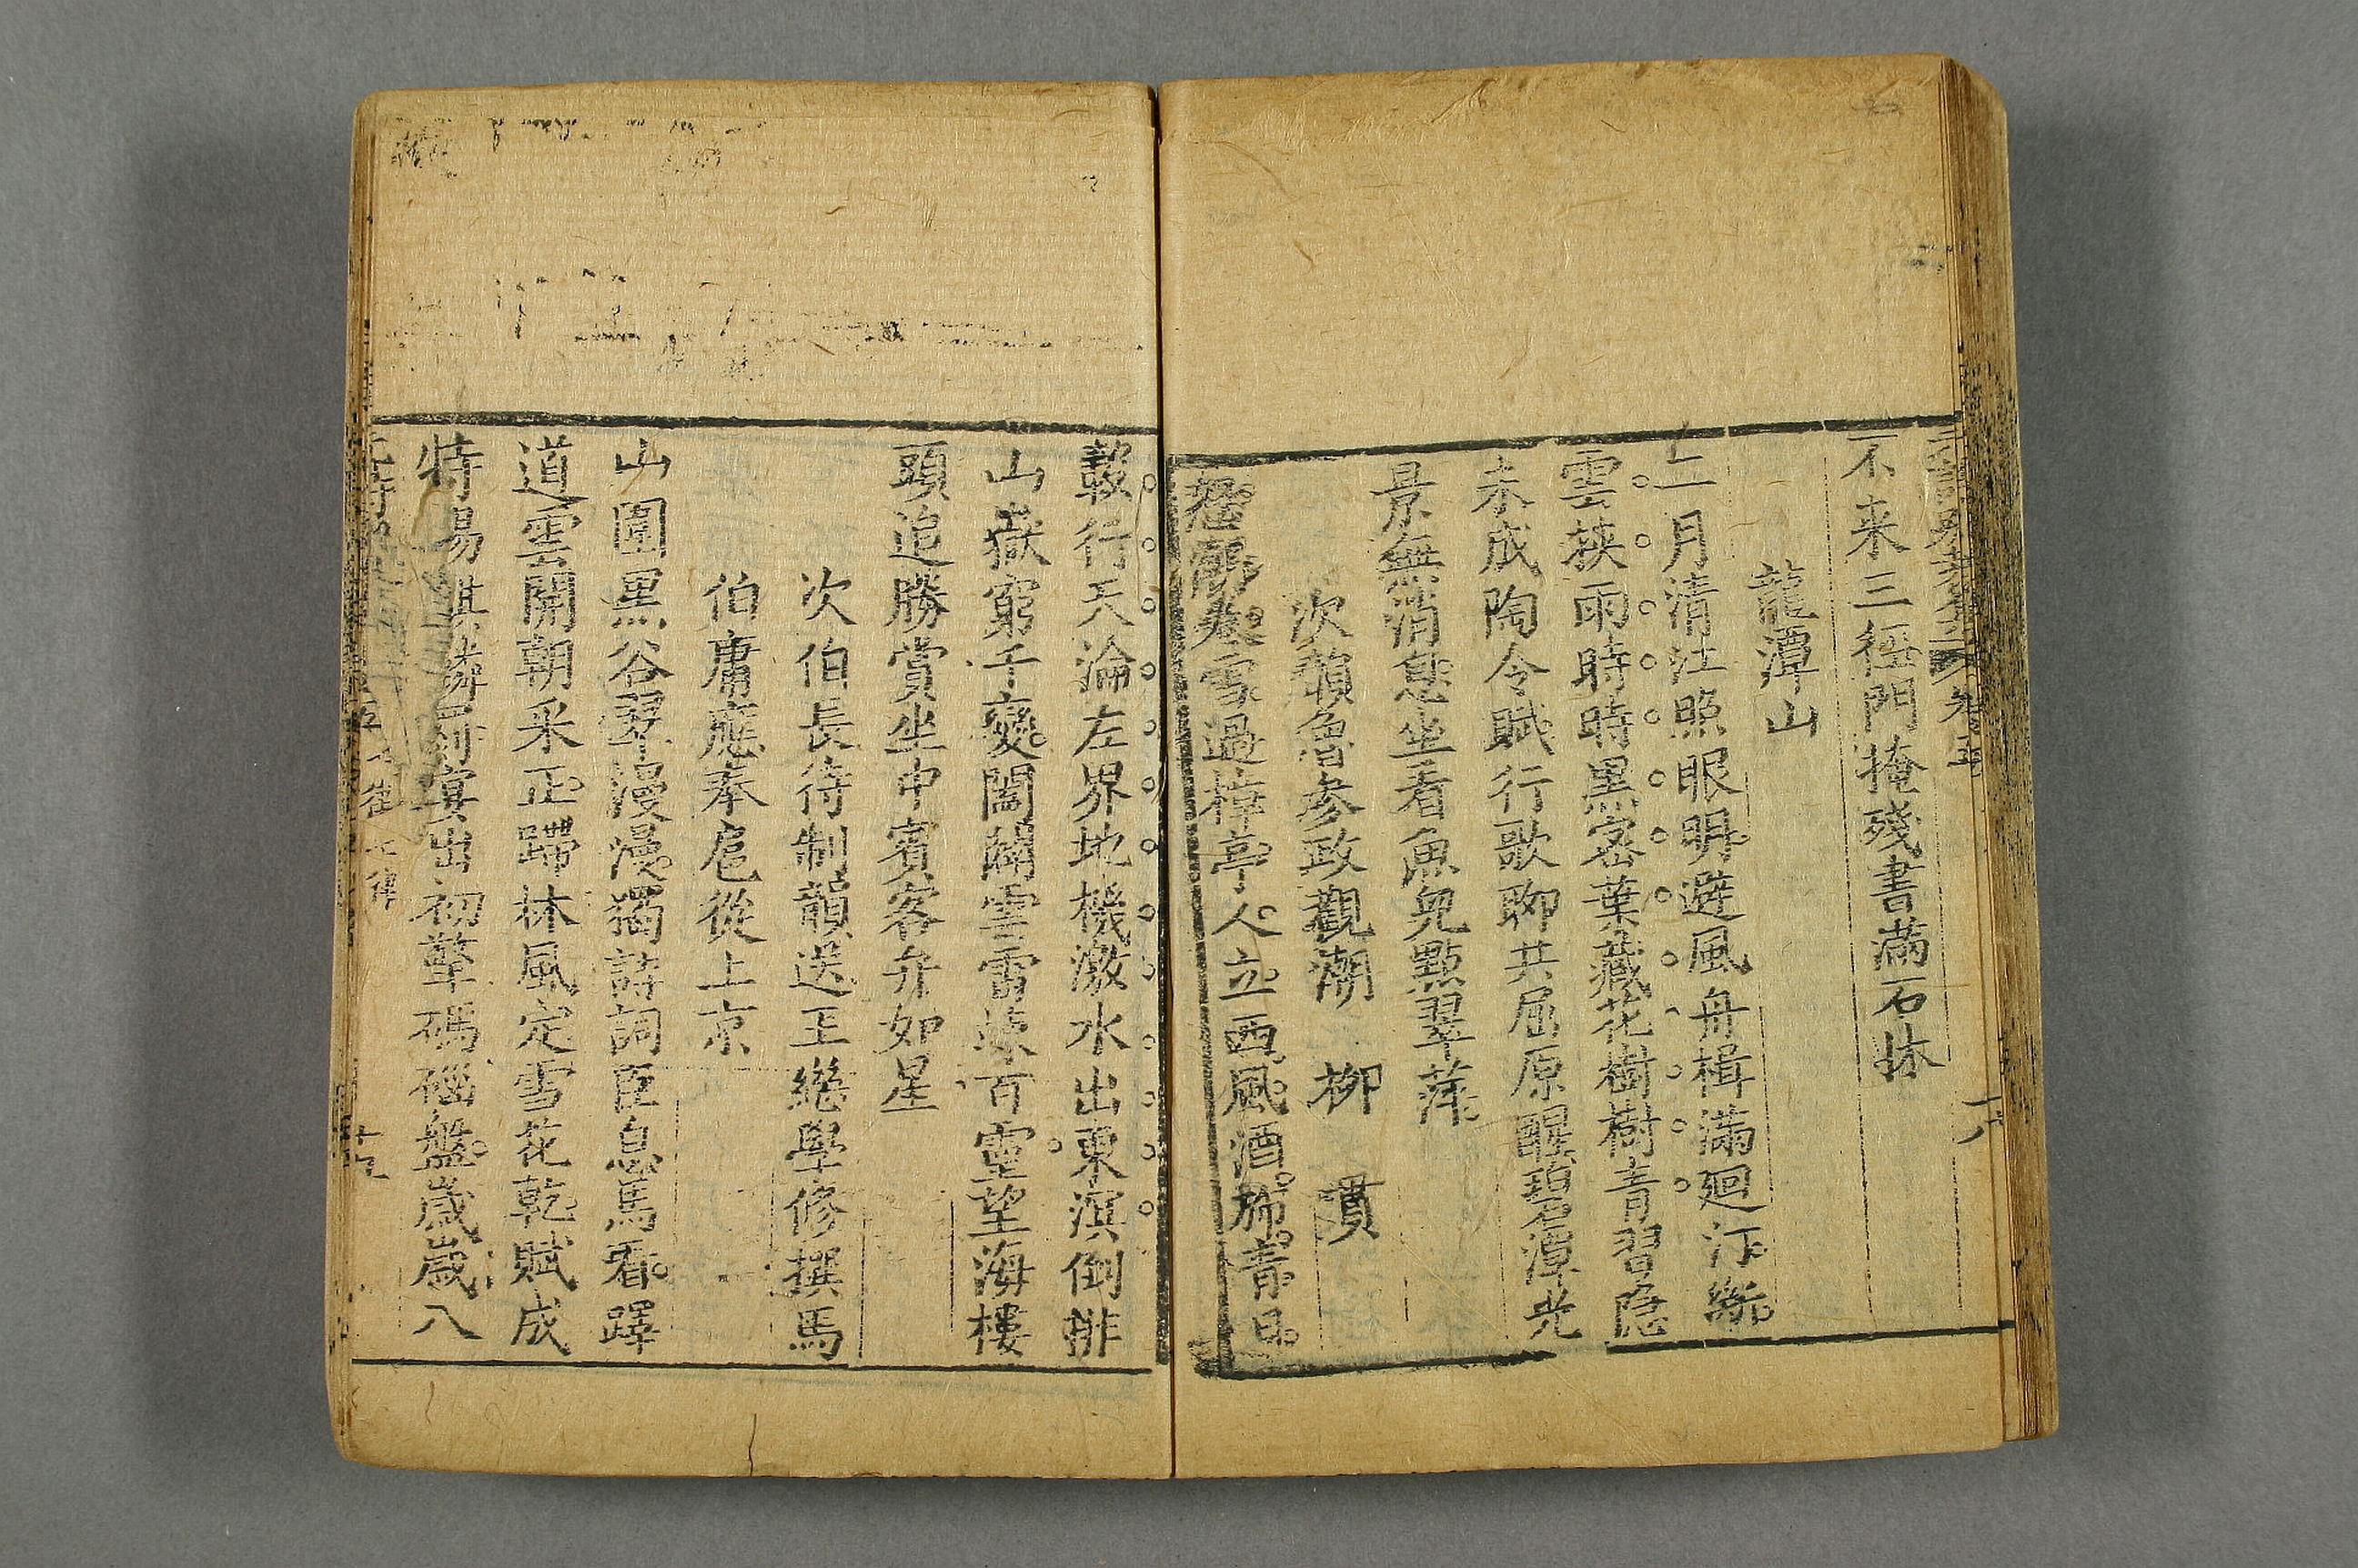 不来三徑門掩殘書滿石牀
龍潭山
二月清江照眼明避風舟楫滿廻汀斷
雲挟雨時時黒密葉藏花樹樹青習隐
未成陶令賦行歌聊共屈原醒碧潭光
景無消息坐看魚兒點翠萍
次韻魯參政觀潮 柳 貫
怒雪過樟亭人立西風酒旆青日
轂行天淪左界地機激水出東溟倒排
山嶽窮千變闔闢雲雷百靈望海樓
頭追勝賞坐中賓客弁如星
次伯長待制韻送王繼學修撰馬
伯庸應奉扈從上京
山圍黒谷翠漫漫獨許詞臣息馬看蹕
道雲開朝采正蹛林風定雪花乾賦成
特易賓出初擎碼碯盤歳歳八